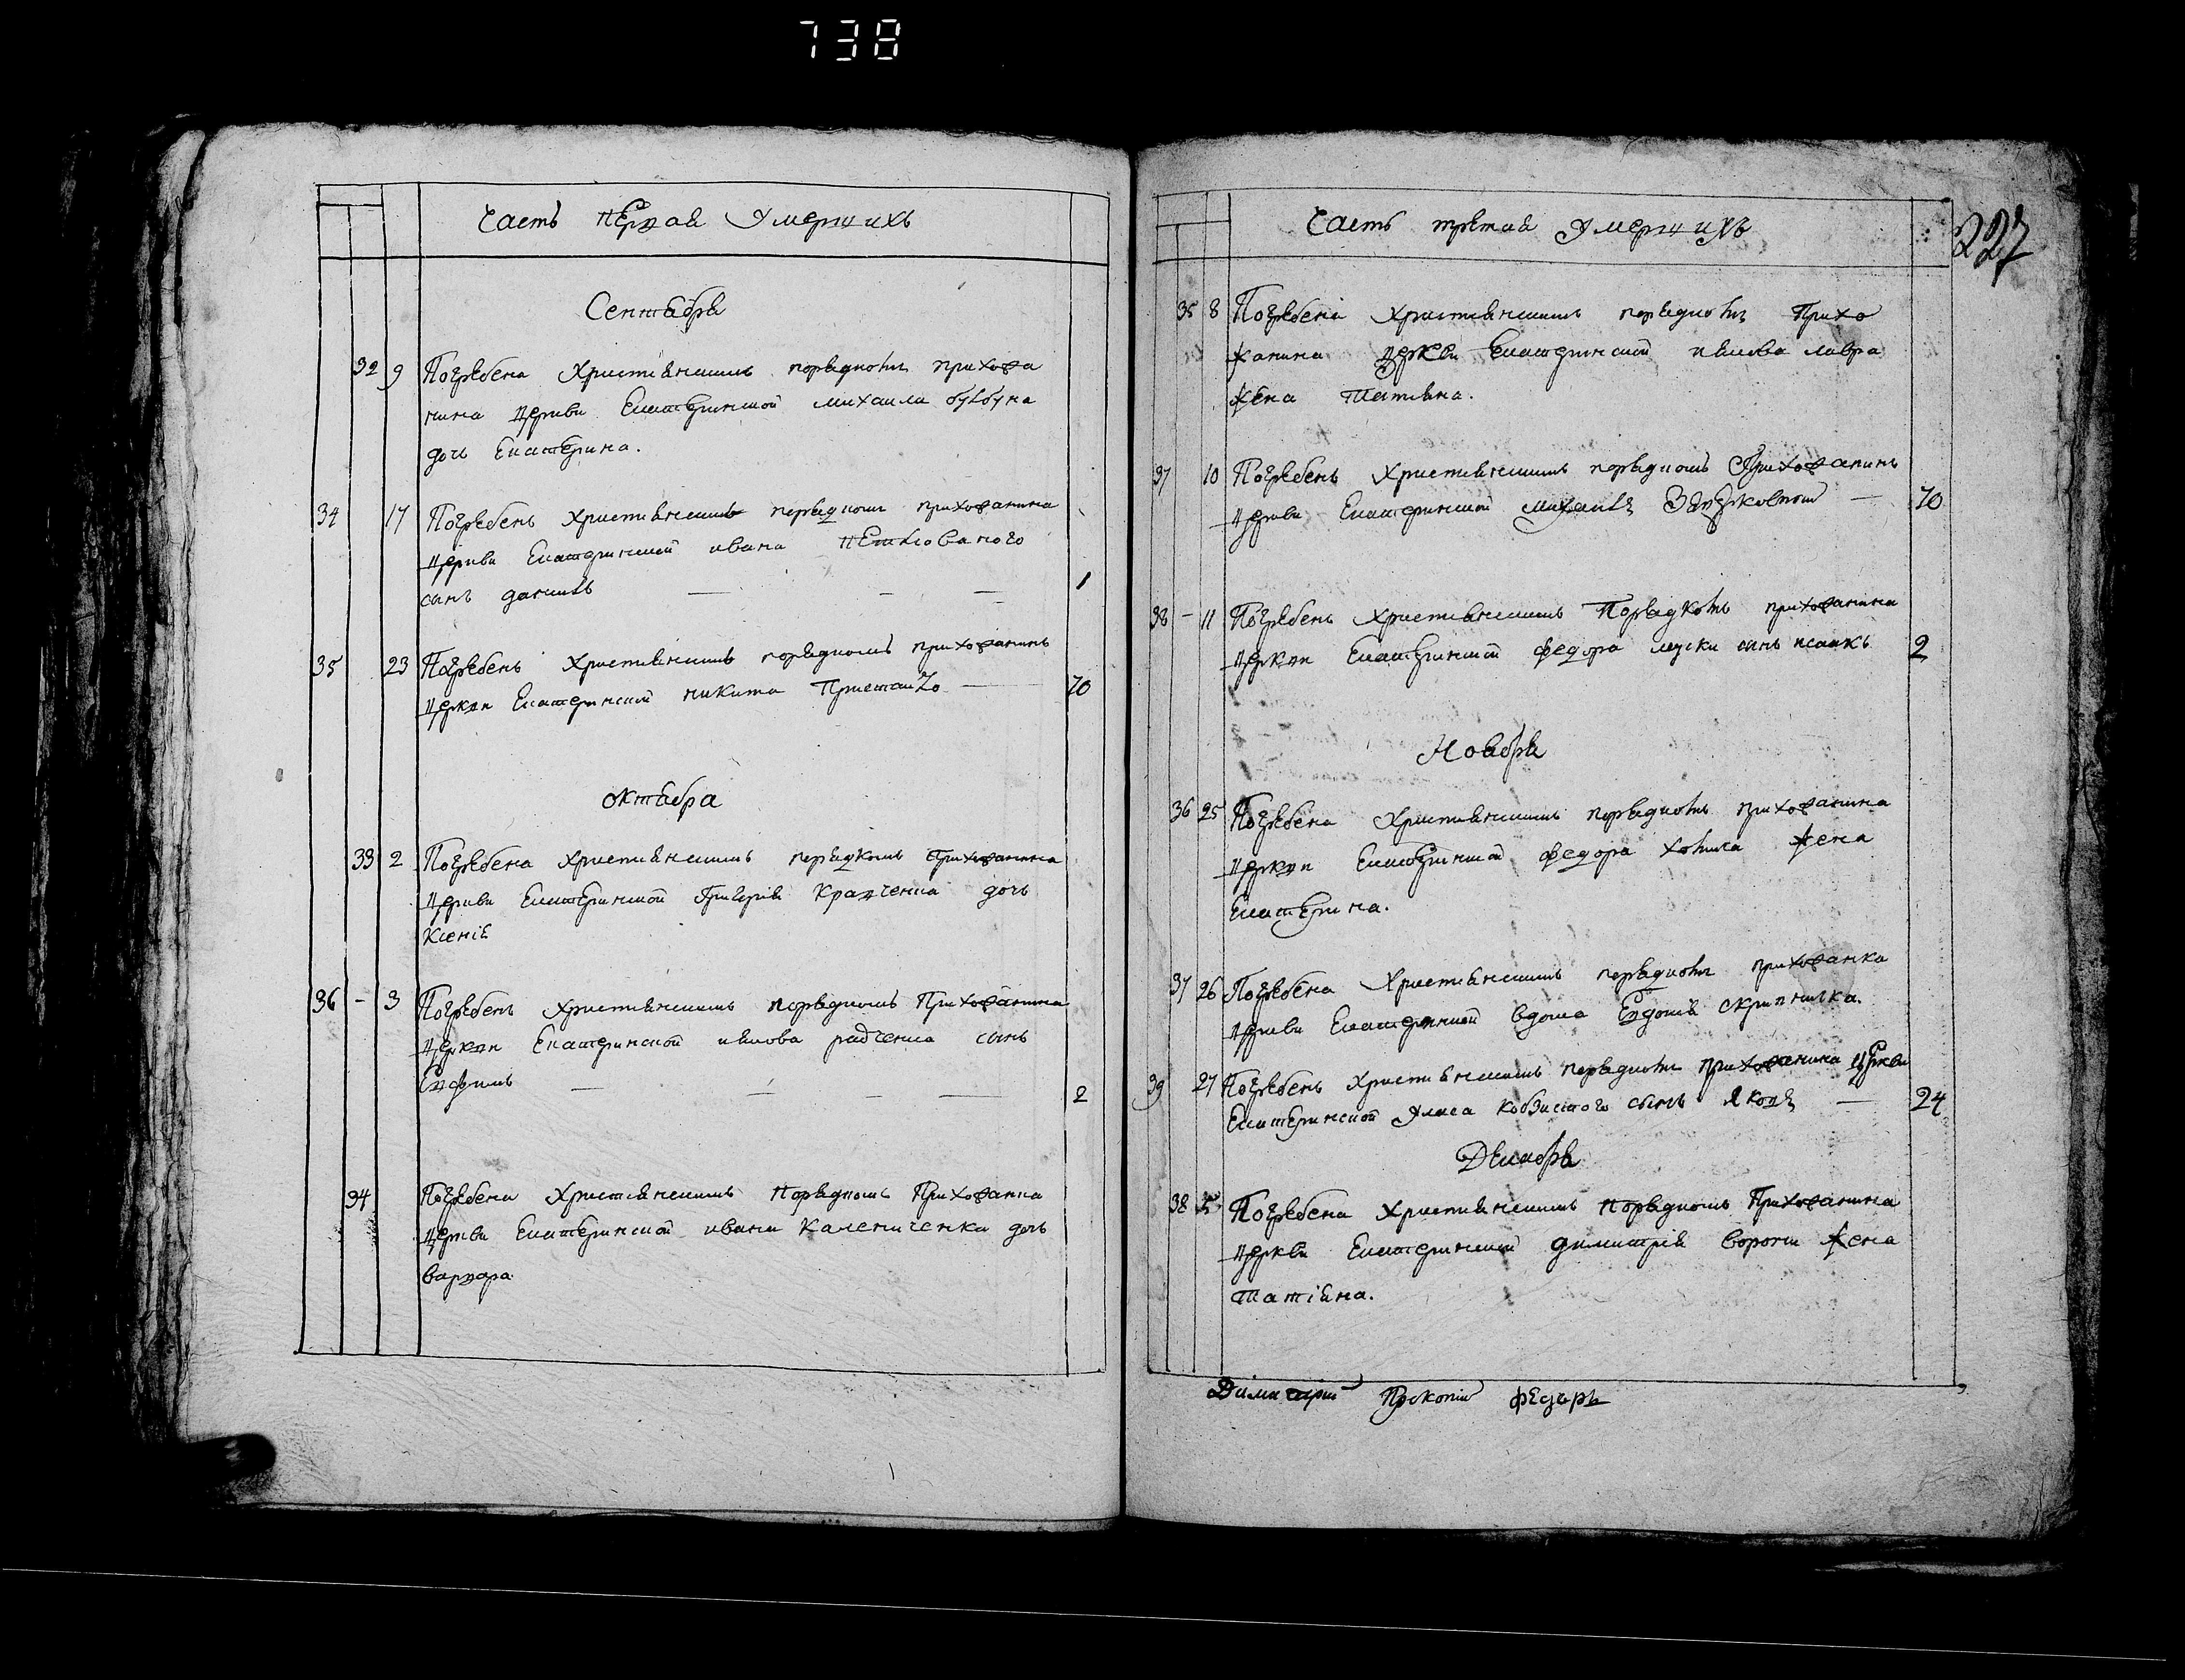 738
Часть первая Умершихъ
Сентября
32 9 Погребена Християнскимъ порядкомъ прихожа
нина Церкви Екатерининской михаила булбуна
дочь Екатерина.
34 17 Погребенъ Християнскимъ порядкомъ прихожанина
Церкви Екатерининской ивана
сынъ данилъ — — — 1
35 23 Погребенъ Християнскимъ порядкомъ прихожанинъ
Церкви Екатерининской никита Пристало — 70
октября
33 2 Погребена Християнскимъ порядкомъ Прихожанина
Церкви Екатерининской Григория Кравченка дочь
Ксенія
36 - 3 Погребенъ Християнскимъ порядкомъ Прихожанина
Церкви Екатерининской иякова радченка сынъ
— — — — 2
34 Погребена Християнскимъ порядкомъ Прихожанина
Церкви Екатерининской ивана Калениченка дочь
варвара
Часть третая Умершихъ
227
35 8 Погребена Християнскимъ порядкомъ Прихо
жанина Церкви Екатерининской иякова лавра
жена Татияна.
37 10 Погребенъ Християнскимъ порядкомъ Прихожанинъ
Церкви Екатерининской михаилъ — 70
38 - 11 Погребенъ Християнскимъ Порядкомъ прихожанина
Церкви Екатерининской федора сынъ исаакъ 2
Ноября
36 25 Погребена Християнскимъ порядкомъ прихожанина
Церкви Екатерининской федора жена
Екатерина.
37 26 Погребена Християнскимъ порядкомъ прихожанка
Церкви Екатерининской вдова Евдокия скрипничка.
39 27 Погребенъ Християнскимъ порядкомъ прихожанина Церкви
Екатерининской Уласа кобзистого сынъ Яковъ — 24
Декабря
38 5 Погребена Християнскимъ порядкомъ Прихожанина
Церкви Екатерининской димитрія жена
Татіяна.
Димитрий Прокопий федоръ